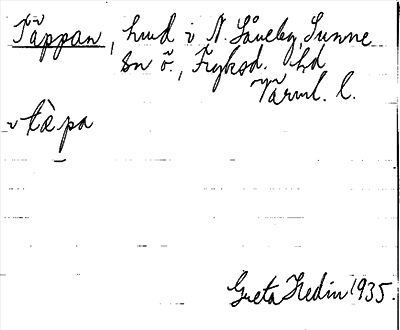 Täppan, hmd i N. Låneby, Sunne
sn ö., Fryksd. hd
Värml. l.
i tàpa
Greta Hedin 1935.